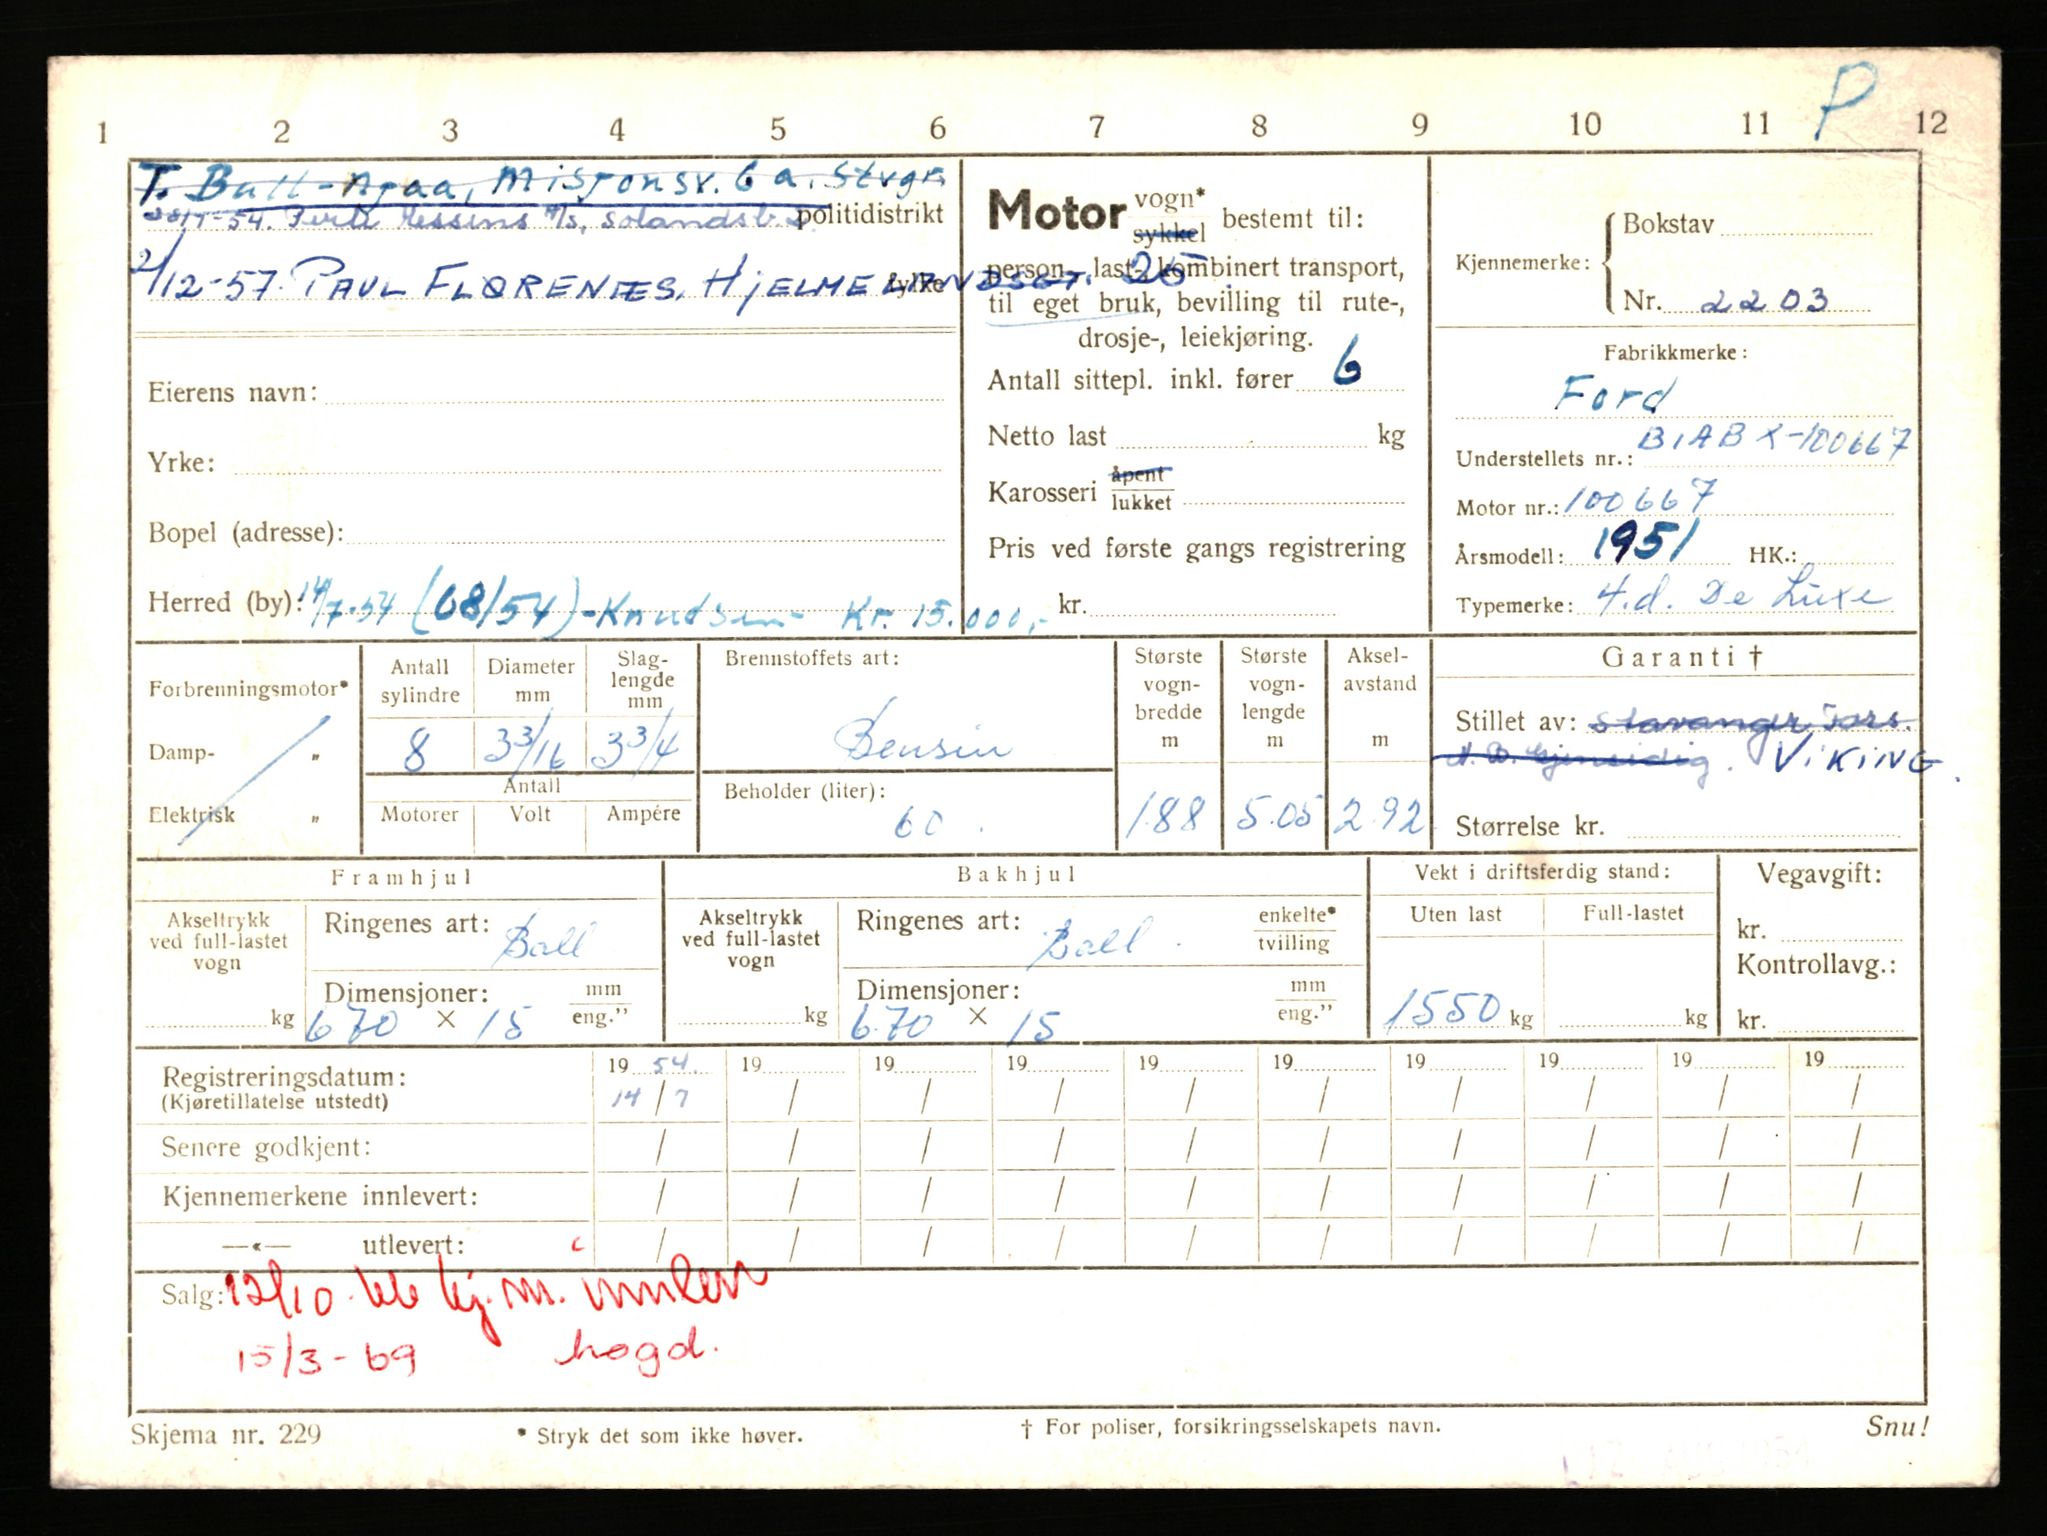 P
1 2 3 4 5 6 7 8 9 10 11 12
T. Bull-Njaa, Misjonsv. 6 a. Stvgr.
politidistrikt
-54. Hessens A/S, Solandsb. 2.
2/12-57. PAUL FLØRENÆS, HJELMELANDSGT. 25
fylke
Eierens navn:
Yrke:
Bopel (adresse):
Herred (by): 14/7-54 (68/54) - Knudsen - Kr. 15.000,-
Motor vogn* sykkel bestemt til:
person-, last-, kombinert transport,
til eget bruk, bevilling til rute-,
drosje-, leiekjøring.
Antall sittepl. inkl. fører 6
Netto last kg
Karosseri åpent lukket
Pris ved første gangs registrering
kr.
Kjennemerke: Bokstav
Nr. 2203
Fabrikkmerke:
Ford
Understellets nr.: B1ABX-100667
Motor nr.: 100667
Årsmodell: 1951 HK.:
Typemerke: 4.d. De Luxe
Forbrenningsmotor*
Damp- "
Elektrisk "
Antall sylindre 8
Diameter mm 3 3/16
Slag-lengde mm 3 3/4
Antall
Motorer Volt Ampére
Brennstoffets art:
Bensin
Beholder (liter):
60.
Største vogn-bredde m 1.88
Største vogn-lengde m 5.05
Aksel-avstand m 2.92
Garanti †
Stillet av: Stavanger Fors.
VIKING.
Størrelse kr.
Framhjul
Akseltrykk ved full-lastet vogn
kg
Ringenes art: Ball
Dimensjoner: mm eng."
6.70 × 15
Bakhjul
Akseltrykk ved full-lastet vogn
kg
Ringenes art: Ball. enkelte* tvilling
Dimensjoner: mm eng."
6.70 × 15
Vekt i driftsferdig stand:
Uten last Full-lastet
1550 kg kg
Vegavgift:
kr.
Kontrollavg.:
kr.
Registreringsdatum: 19 54. 19 19 19 19 19 19 19 19 19
(Kjøretillatelse utstedt) 14/7 / / / / / / / / /
Senere godkjent: / / / / / / / / / /
Kjennemerkene innlevert: / / / / / / / / / /
—«— utlevert: / / / / / / / / / /
Salg: 12/10. kj.m. innlev
15/3-69 hogd.
Skjema nr. 229 * Stryk det som ikke høver. † For poliser, forsikringsselskapets navn. Snu!